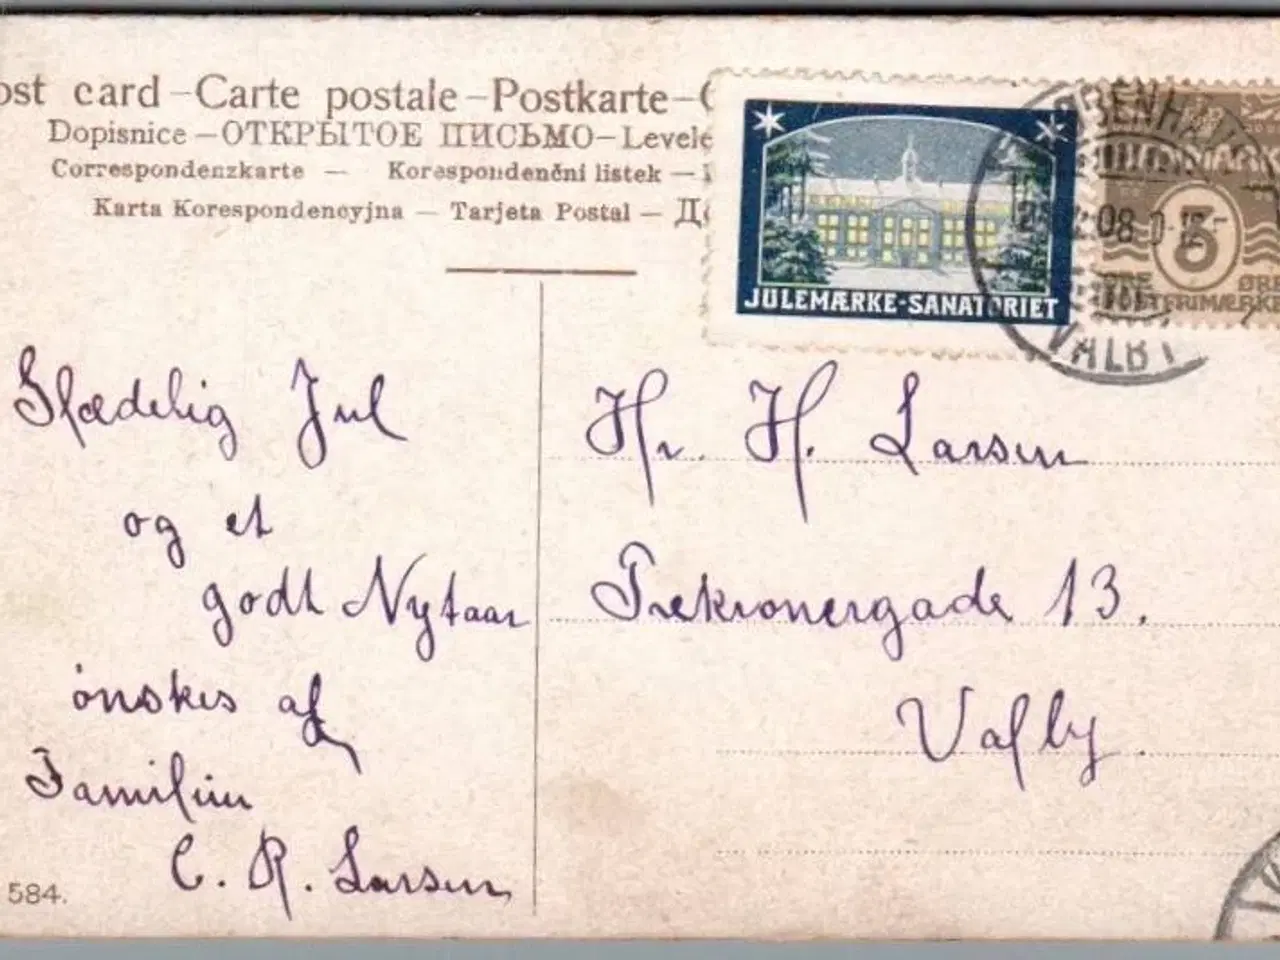 ost card – Carte postale – Postkarte –
Dopisnice – ОТКРЫТОЕ ПИСЬМО – Levele
Correspondenzkarte — Korespondenční listek —
Karta Korespondencyjna — Tarjeta Postal —
JULEMÆRKE-SANATORIET
KØBENHAV
08
VALBY
3
ØRE
FRIMÆRKE
Glædelig Jul
og et
godt Nytaar
önskes af
Familien
C. R. Larsen
Hr. H. Larsen
Trekronergade 13.
Valby.
584.